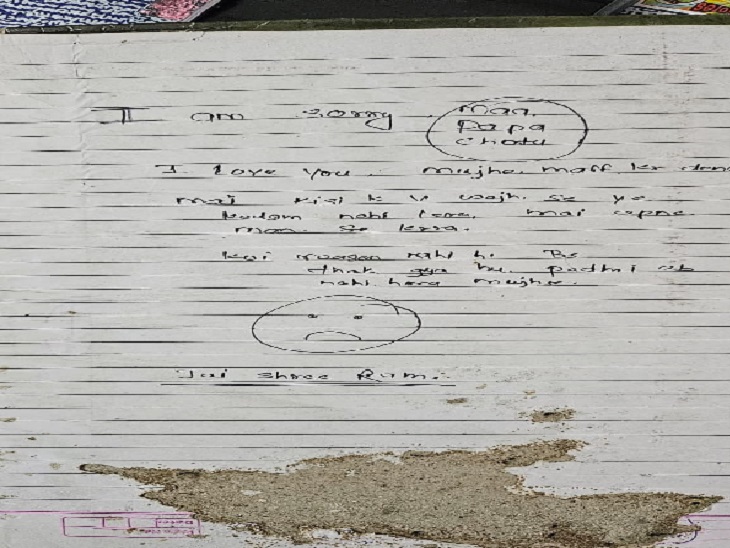 I am sorry. Maa,
Papa
Chotu
I love you. Mujhe maff kr dena
mai kisi k v wajh se ye
kadam nahi lera. mai apne
man se krra.
koi reason nahi h. Bs
thak gya hu padhi ab
nahi hora mujhse.
Jai Shree Ram.